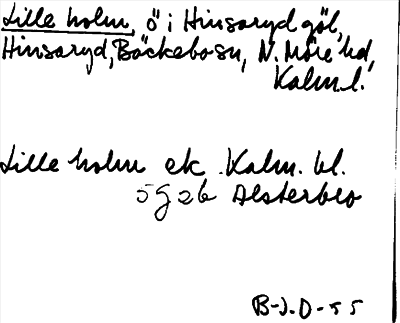 Lille holm, ö i Hinsaryd göl,
Hinsaryd, Bäckebo sn, N. Möre hd,
Kalm. l.
Lille holm ek. Kalm. bl.
5 g 2 b Alsterbro
B-J.O-55